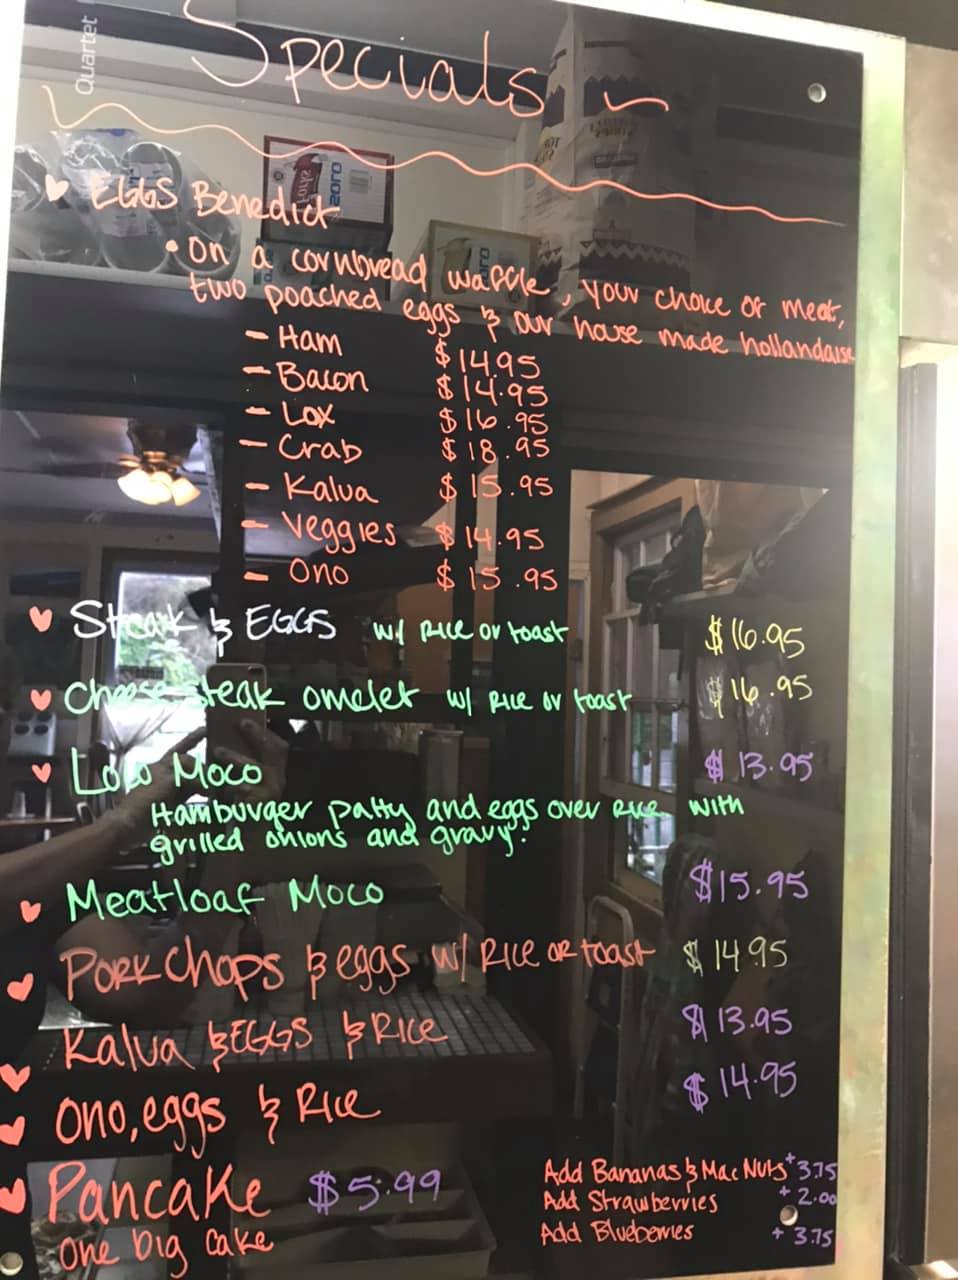 Quartet
Specials
EGGS Benedict
• on a cornbread waffle, your choice of meat,
two poached eggs & our house made hollandaise
- Ham $14.95
- Bacon $14.95
- Lox $16.95
- Crab $18.95
- Kalua $15.95
- Veggies $14.95
- Ono $15.95
Steak & EGGS w/ Rice or toast $16.95
Cheesesteak omelet w/ Rice or toast $16.95
Loco Moco $13.95
Hamburger patty and eggs over Rice with
grilled onions and gravy.
Meatloaf Moco $15.95
Pork Chops & eggs w/ Rice or toast $14.95
Kalua & EGGS & Rice $13.95
Ono, eggs & Rice $14.95
Pancake $5.99
One big Cake
Add Bananas & Mac Nuts +3.75
Add Strawberries +2.00
Add Blueberries +3.75